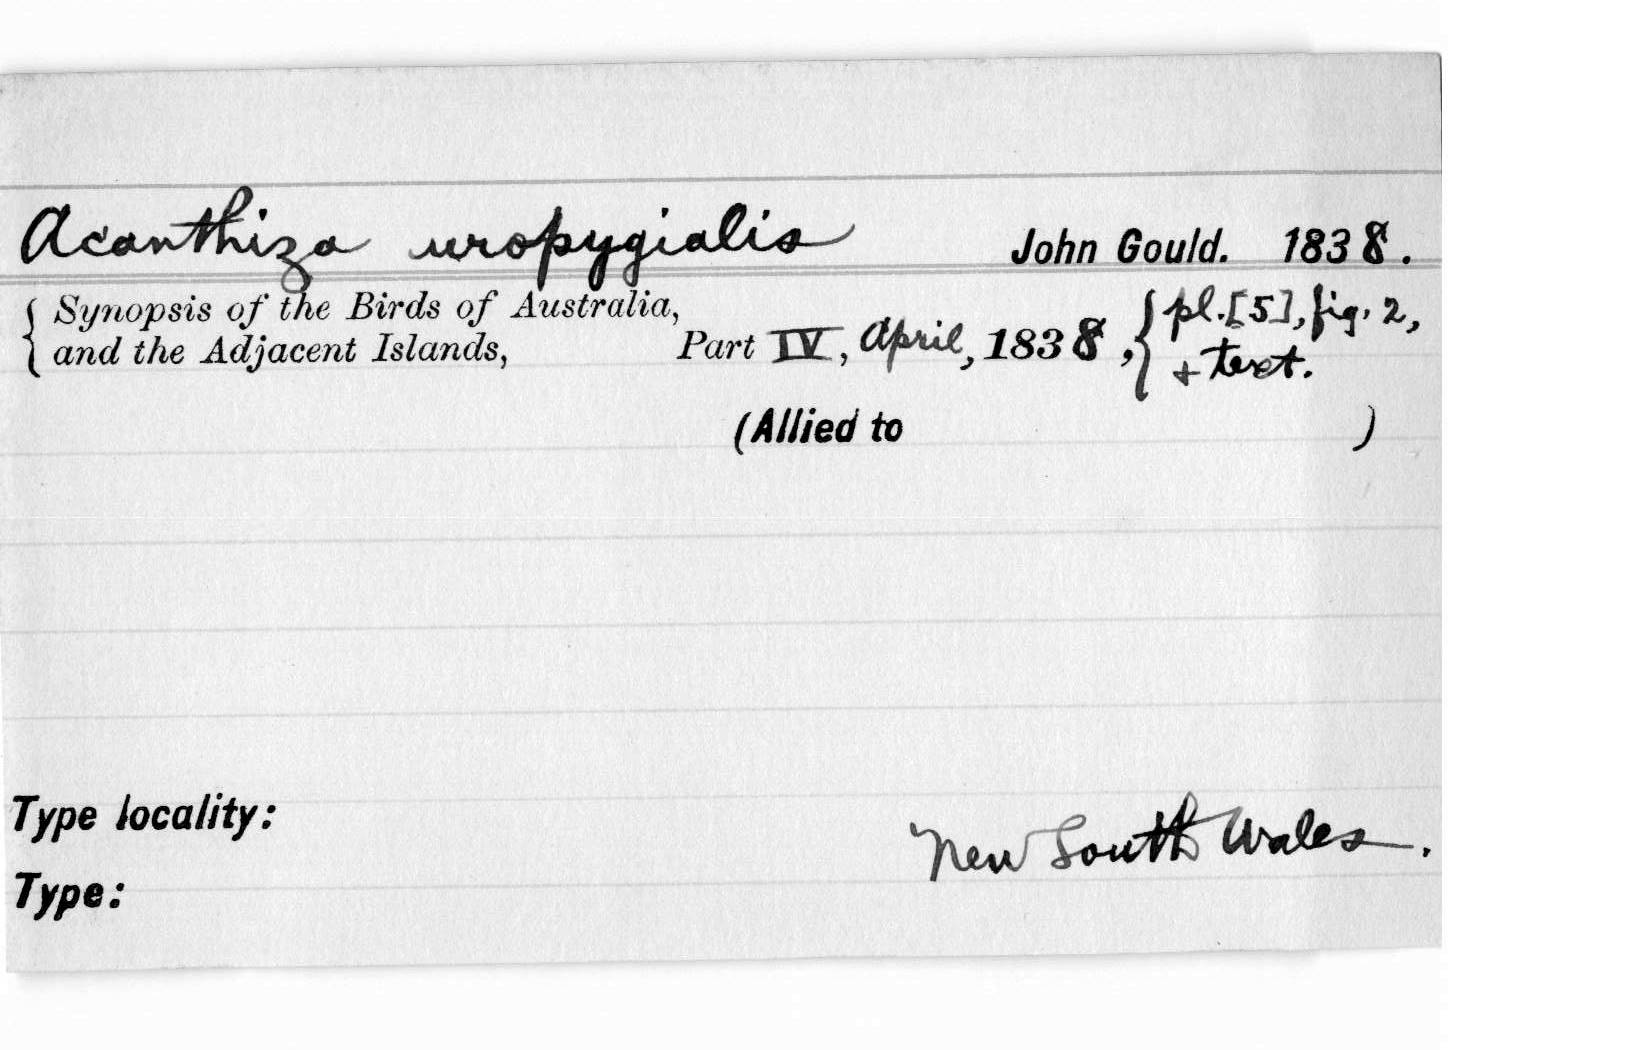 Acanthiza uropygialis John Gould. 1838.
{ Synopsis of the Birds of Australia,
and the Adjacent Islands, Part IV, April, 1838, { pl. [5], fig. 2,
+ text.
(Allied to )
Type locality:
New South Wales.
Type: